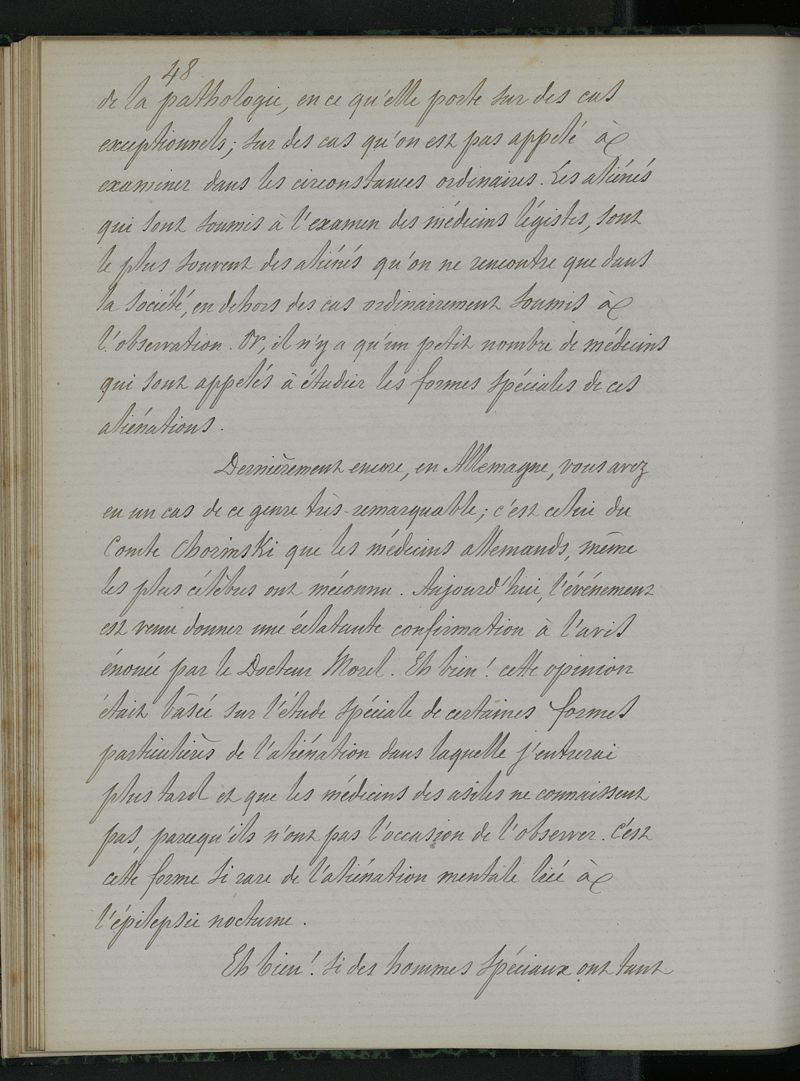 48
de la pathologie, en ce qu'elle porte sur des cas
exceptionnels; sur des cas qu'on est pas appelé à
examiner dans les circonstances ordinaires. Les aliénés
qui sont soumis à l'examen des médecins légistes, sont
le plus souvent des aliénés qu'on ne rencontre que dans
la société, en dehors des cas ordinairement soumis à
l'observation. Or, il n'y a qu'un petit nombre de médecins
qui sont appelés à étudier les formes spéciales de ces
aliénations.
Dernièrement encore, en Allemagne, vous avez
eu un cas de ce genre très-remarquable; c'est celui du
Comte Chorinski que les médecins allemands, même
les plus célèbres ont méconnu. Aujourd'hui, l'événement
est venu donner une éclatante confirmation à l'avis
énoncé par le Docteur Morel. Eh bien! cette opinion
était basée sur l'étude spéciale de certaines formes
particulières de l'aliénation dans laquelle j'entrerai
plus tard et que les médecins des asiles ne connaissent
pas, parcequ'ils n'ont pas l'occasion de l'observer. C'est
cette forme si rare de l'aliénation mentale liée à
l'épilepsie nocturne.
Eh bien! si des hommes spéciaux ont tant